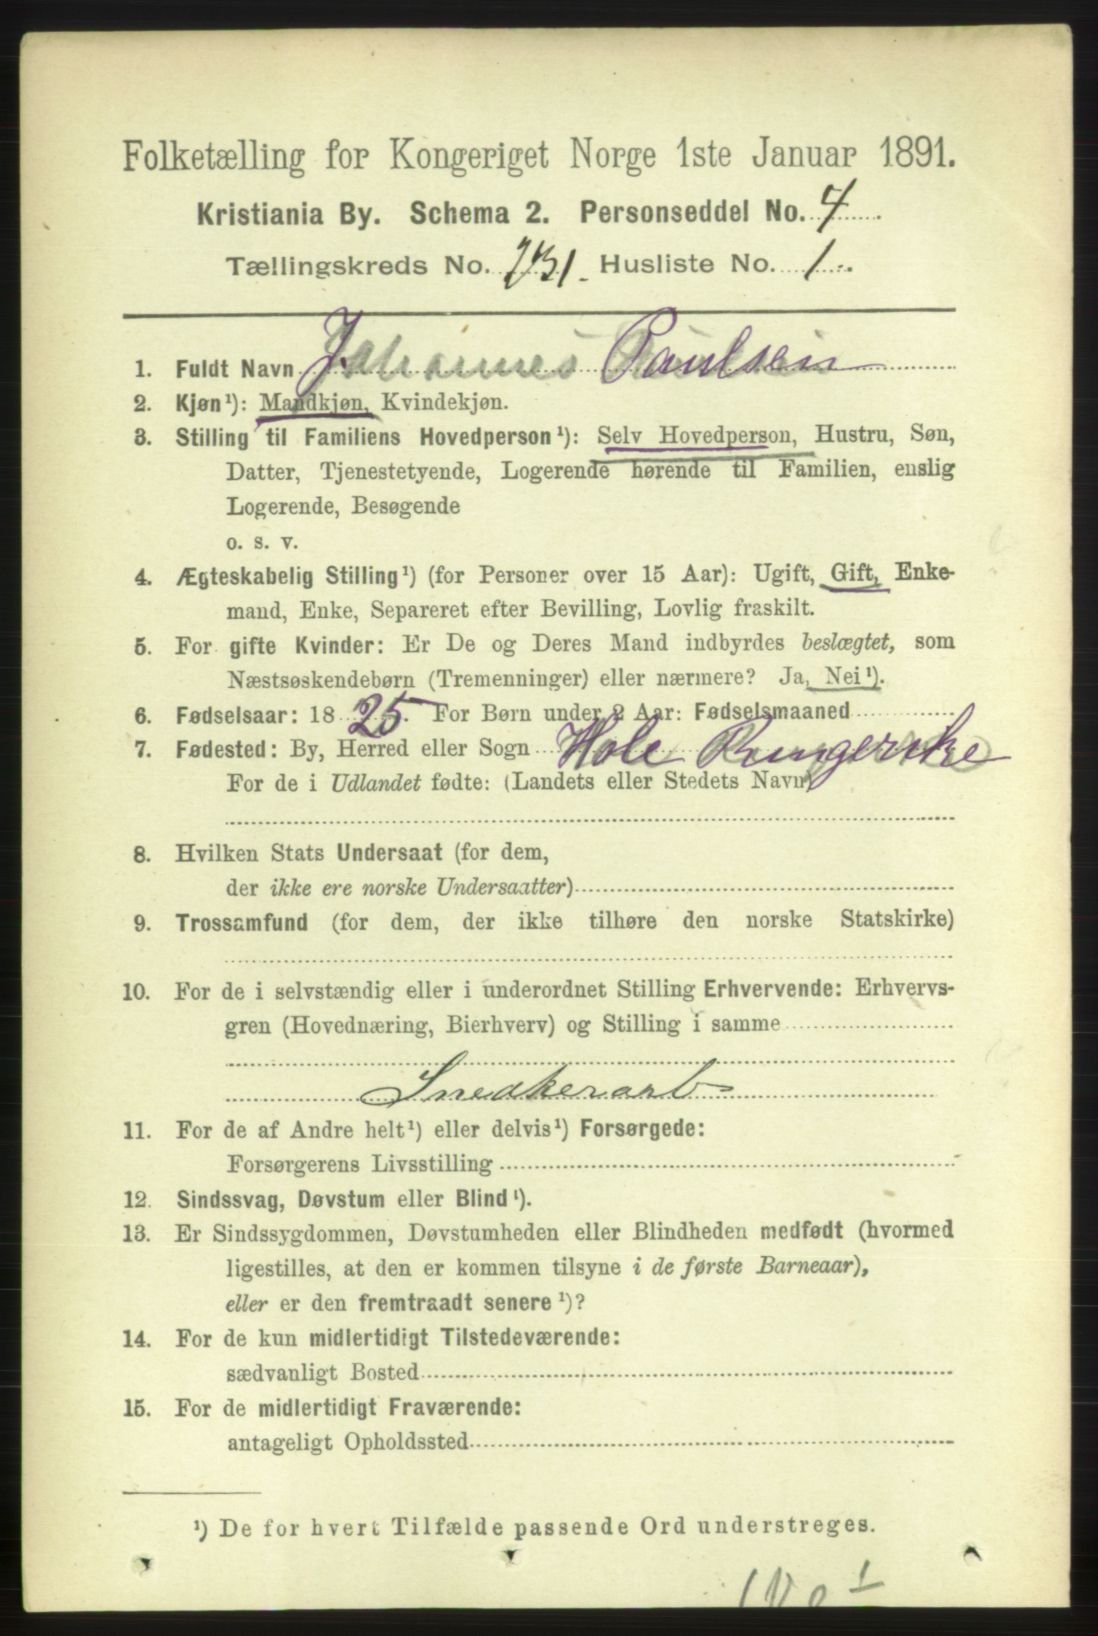 Folketælling for Kongeriget Norge 1ste Januar 1891.
Kristiania By. Schema 2. Personseddel No. 4
Tællingskreds No. 231. Husliste No. 1
1. Fuldt Navn Johannes Paulsen
2. Kjøn¹): Mandkjøn, Kvindekjøn.
3. Stilling til Familiens Hovedperson¹): Selv Hovedperson, Hustru, Søn,
Datter, Tjenestetyende, Logerende hørende til Familien, enslig
Logerende, Besøgende
o. s. v.
4. Ægteskabelig Stilling¹) (for Personer over 15 Aar): Ugift, Gift, Enke-
mand, Enke, Separeret efter Bevilling, Lovlig fraskilt.
5. For gifte Kvinder: Er De og Deres Mand indbyrdes beslægtet, som
Næstsøskendebørn (Tremenninger) eller nærmere? Ja, Nei¹).
6. Fødselsaar: 18 25. For Børn under 2 Aar: Fødselsmaaned
7. Fødested: By, Herred eller Sogn Hole Ringerike
For de i Udlandet fødte: (Landets eller Stedets Navn)
8. Hvilken Stats Undersaat (for dem,
der ikke ere norske Undersaatter)
9. Trossamfund (for dem, der ikke tilhøre den norske Statskirke)
10. For de i selvstændig eller i underordnet Stilling Erhvervende: Erhvervs-
gren (Hovednæring, Bierhverv) og Stilling i samme
Snedkerarb
11. For de af Andre helt¹) eller delvis¹) Forsørgede:
Forsørgerens Livsstilling
12. Sindssvag, Døvstum eller Blind¹).
13. Er Sindssygdommen, Døvstumheden eller Blindheden medfødt (hvormed
ligestilles, at den er kommen tilsyne i de første Barneaar),
eller er den fremtraadt senere¹)?
14. For de kun midlertidigt Tilstedeværende:
sædvanligt Bosted
15. For de midlertidigt Fraværende:
antageligt Opholdssted
¹) De for hvert Tilfælde passende Ord understreges.